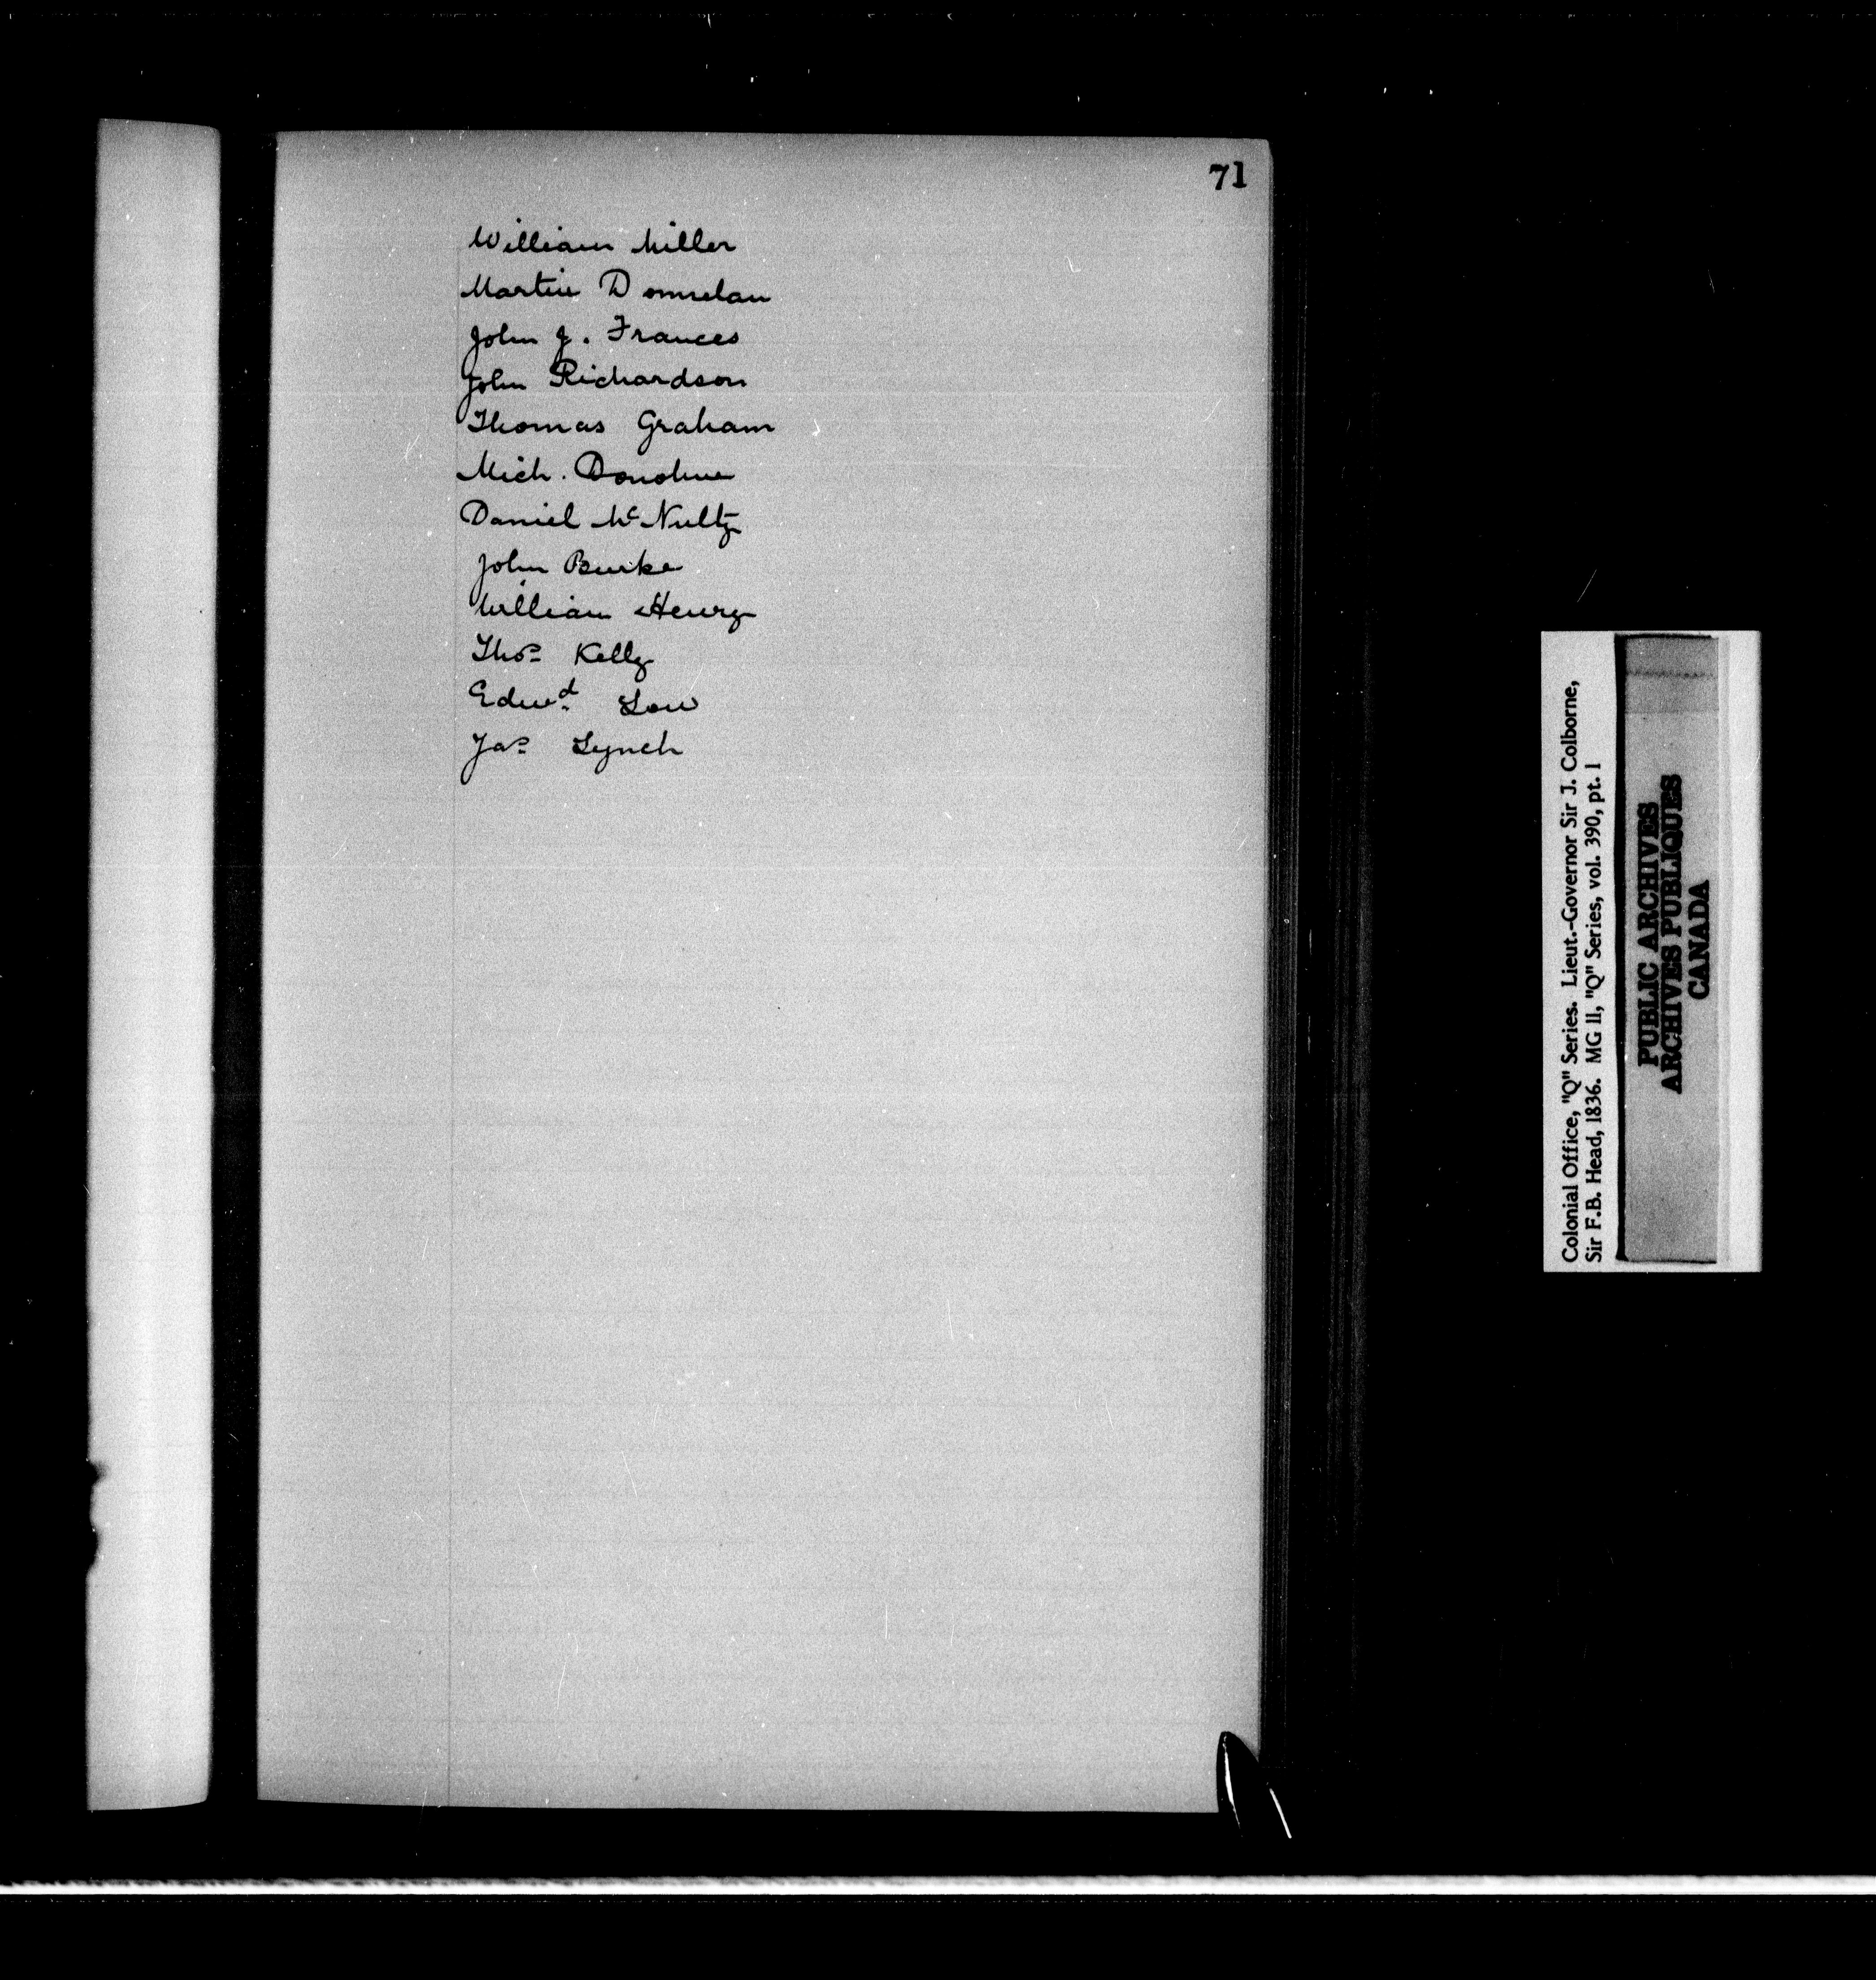 71
William Miller
Martin Donnelan
John J. Frances
John Richardson
Thomas Graham
Mich. Donohue
Daniel McNulty
John Burke
William Henry
Thos. Kelly
Edwd. Low
Jas. Lynch
Colonial Office, "Q" Series. Lieut.-Governor Sir J. Colborne,
Sir F.B. Head, 1836. MG 11, "Q" Series, vol. 390, pt. 1
PUBLIC ARCHIVES
ARCHIVES PUBLIQUES
CANADA